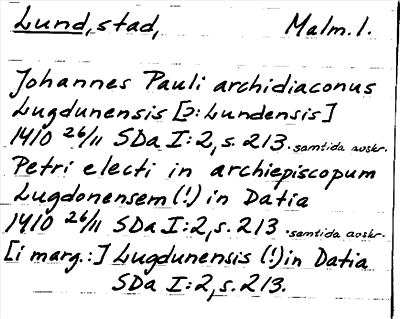 Lund, stad, Malm. l.
Johannes Pauli archidiaconus
Lugdunensis [ɔ: Lundensis]
1410 26/11 SDa I:2, s. 213. samtida avskr.
Petri electi in archiepiscopum
Lugdonensem (!) in Datia
1410 26/11 SDa I:2, s. 213. samtida avskr.
[i marg.:] Lugdunensis (!) in Datia
SDa I:2, s. 213.